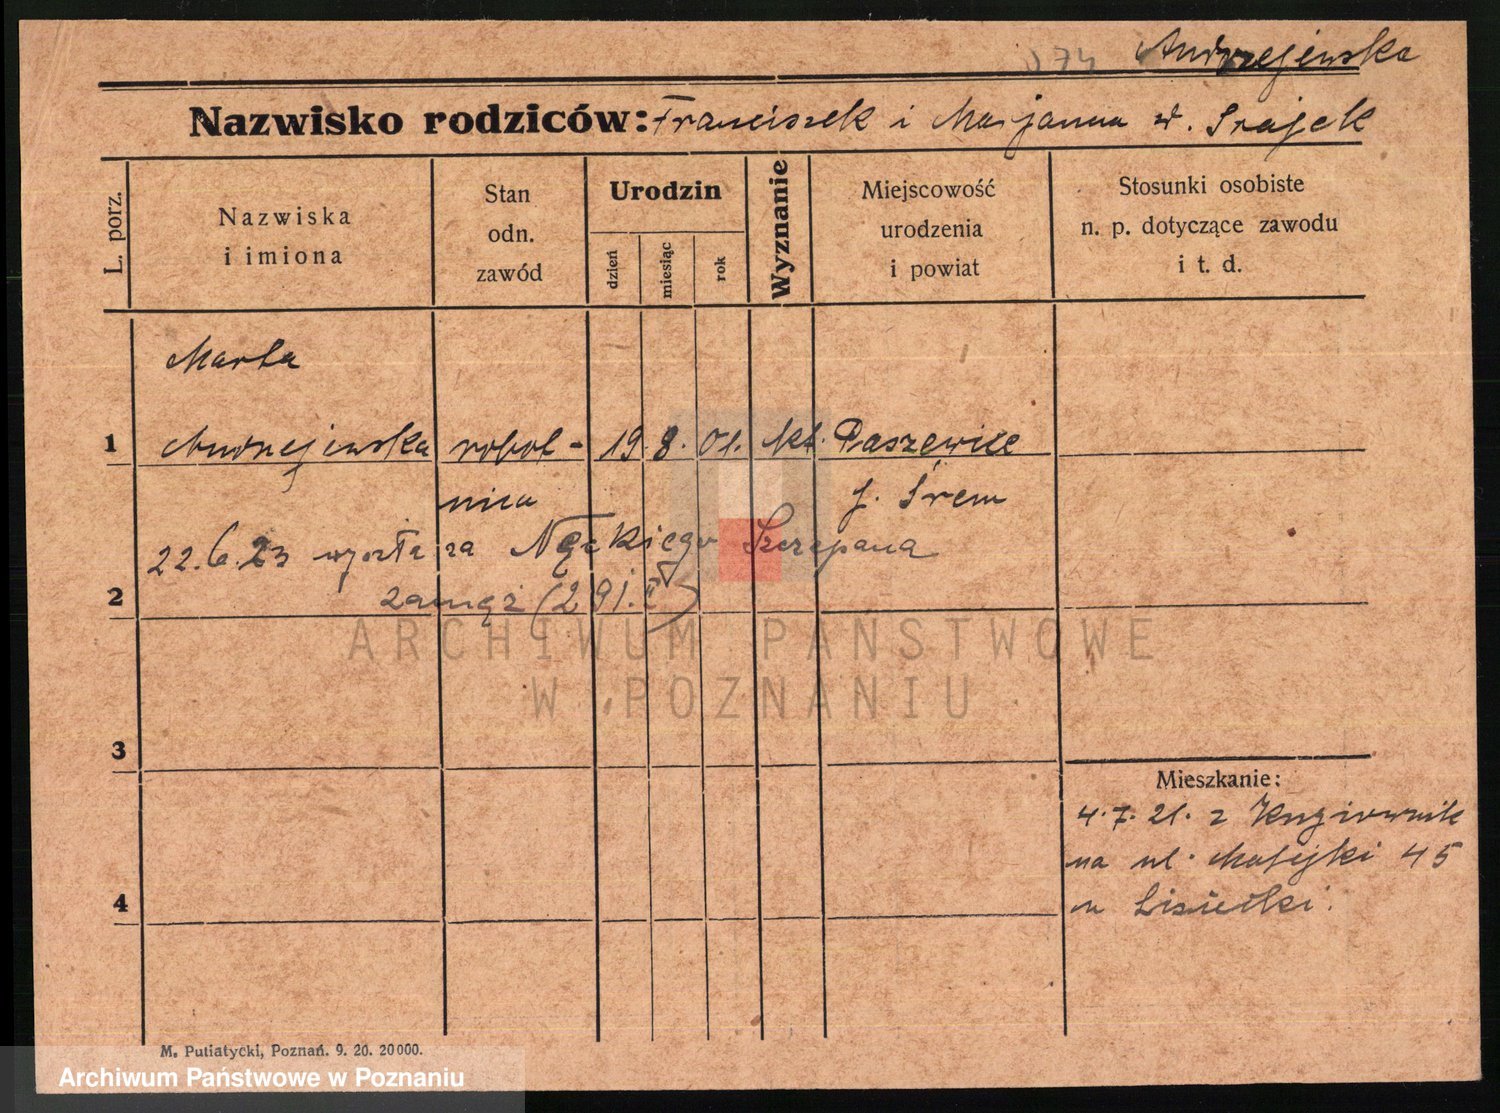 Andrzejewska
Nazwisko rodziców: Franciszek i Marjanna z d. Srajek
L. porz.
Nazwiska
i imiona
Stan
odn.
zawód
Urodzin
dzień
miesiąc
rok
Wyznanie
Miejscowość
urodzenia
i powiat
Stosunki osobiste
n. p. dotyczące zawodu
i t. d.
Marta
1 Andrzejewska robot- 19 8. 01. kt. Daszewice
nica p. Śrem
22.6.23 wyszła za Szczepana
2 zamęż
ARCHIWUM PAŃSTWOWE
W POZNANIU
3
Mieszkanie:
4.7.21. z
na ul. Matejki 45
4 u
M. Putiatycki, Poznań. 9. 20. 20000.
Archiwum Państwowe w Poznaniu